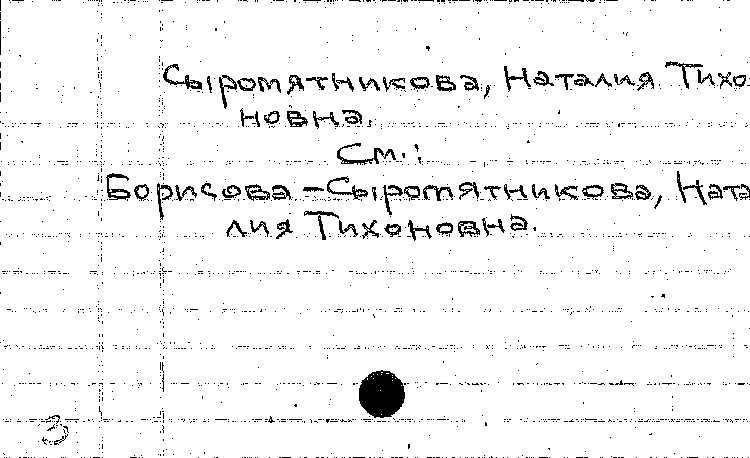 Сыромятникова, Наталия Тихо
новна.
См.:
Борисова-Сыромятникова, Ната
лия Тихоновна.
3